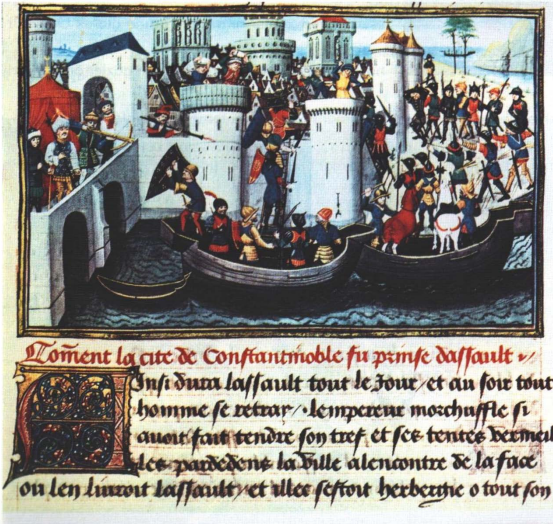 Coment la cite de Constantinoble fu prinse dassault
Ainsi dura lassault tout le Jour / et au soir tout
homme se retray / lempereur morchuffle si
auoit fait tendre son tref et ses tentes vermeil
les pardedens la ville alencontre de la face
ou len liuroit lassault / et illec sestoit herbergie o tout son